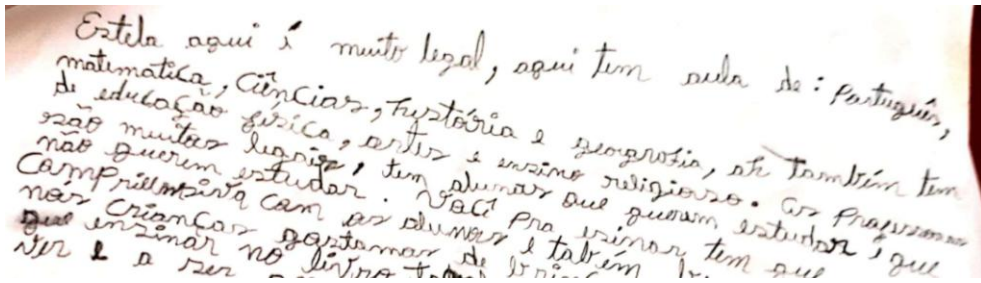 Estela aqui é muito legal, aqui tem aula de: Português,
matematica, Ciências, hystória e geografia, ah também tem
de educação física, artes e ensino religioso. Os Professores
são muitos legais, tem alunos que querem estudar é que
não querem estudar. Você pra isinar tem que
Comprienciva com os alunos e tabém
nós crianças gostamos de
que ensinar no livro
ver e a ser